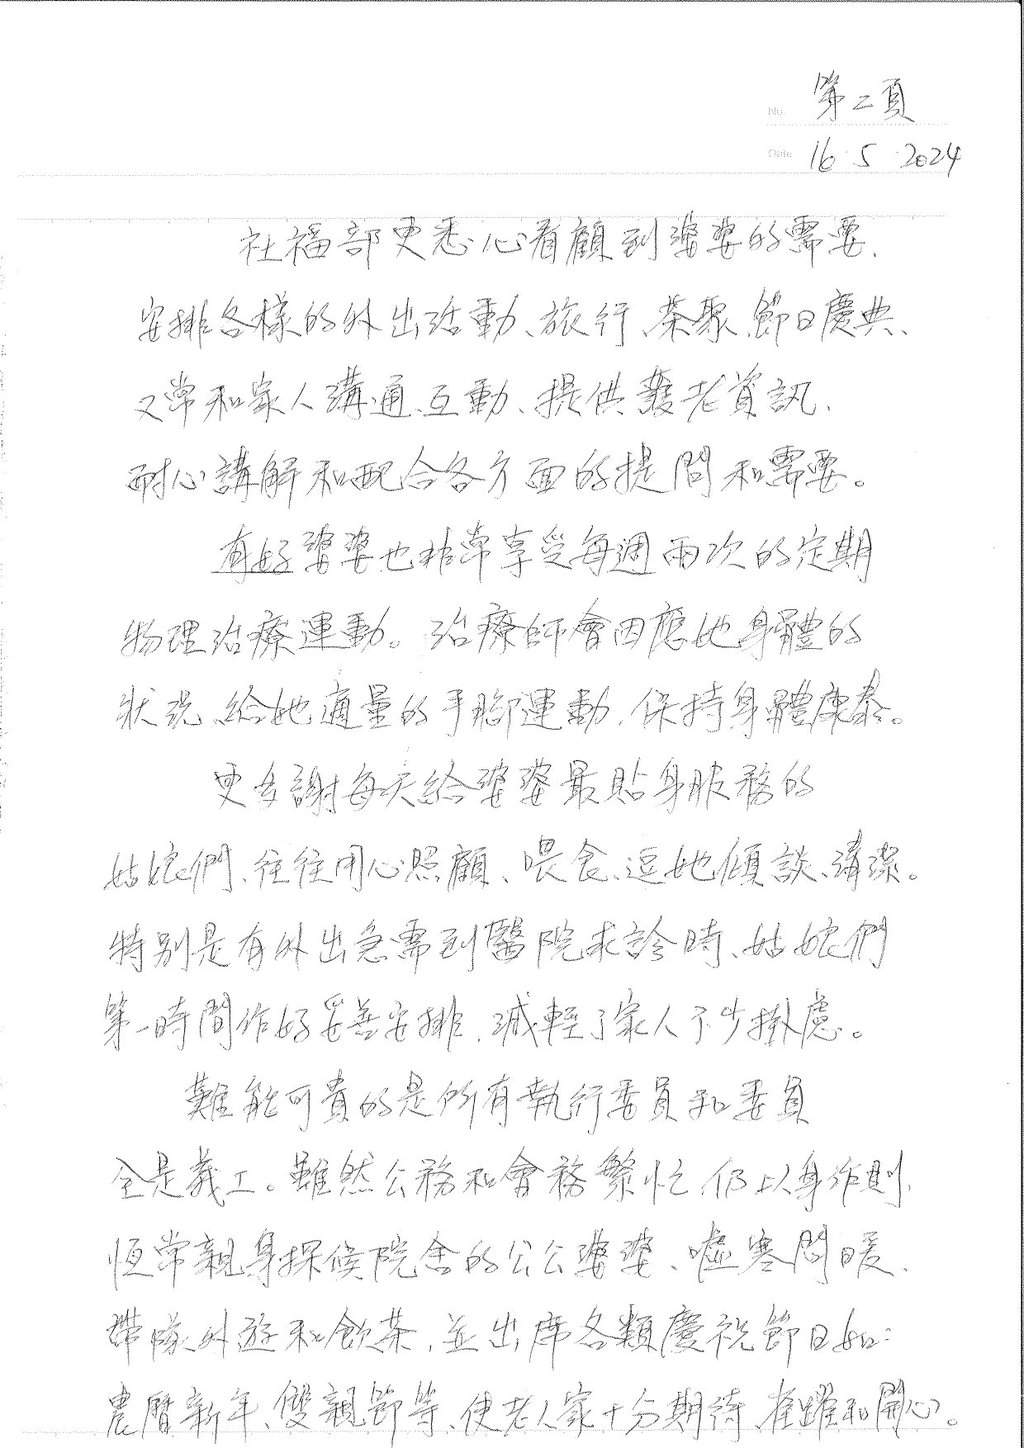 No. 第二頁
Date 16.5.2024
社福部更悉心看顧到婆婆的需要,
安排各樣的外出活動、旅行、茶聚、節日慶典、
又常和家人溝通、互動、提供護老資訊,
耐心講解和配合各方面的提問和需要。
有好婆婆也非常享受每週兩次的定期
物理治療運動。治療師會因應她身體的
狀況、給她適量的手腳運動,保持身體康泰。
更多謝每天給婆婆最貼身服務的
姑娘們、往往用心照顧、喂食、逗她傾談、清潔。
特別是有外出急需到醫院求診時、姑娘們
第一時間作好妥善安排,減輕了家人不少掛慮。
難能可貴的是所有執行委員和委員
全是義工。雖然公務和會務繁忙,仍以身作則,
恆常親身探候院舍的公公婆婆、噓寒問暖,
帶隊外遊和飲茶,並出席各類慶祝節日如:
農曆新年、雙親節等、使老人家十分期待、雀躍和開心。